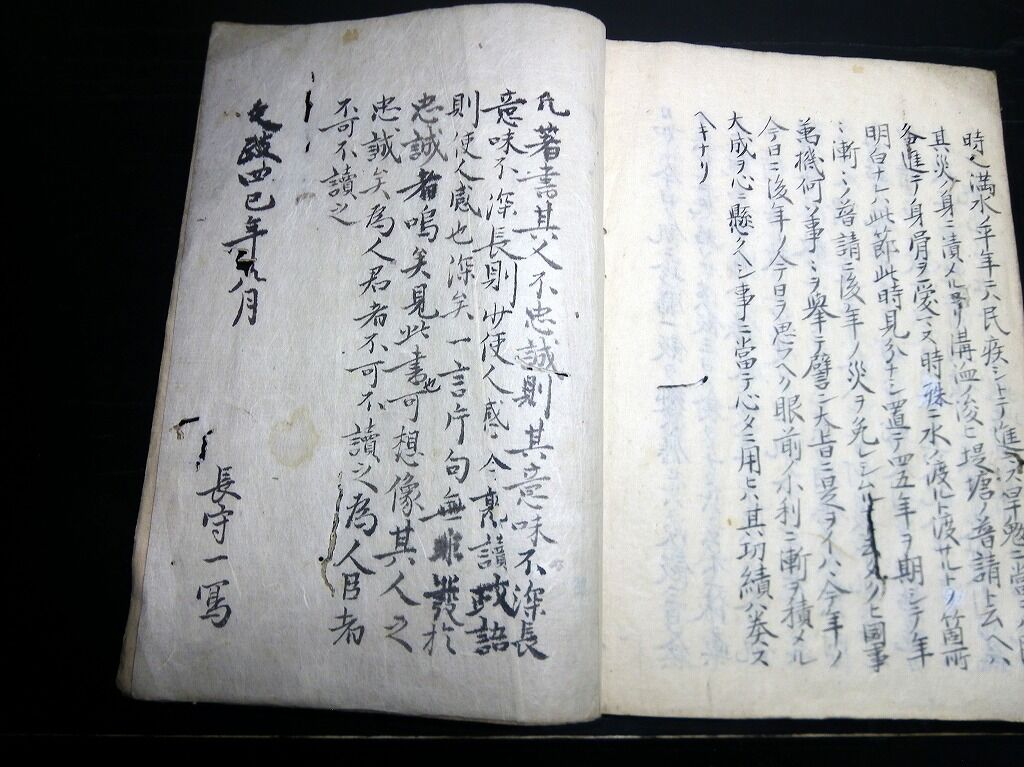 時ヘ満水ノ年年ニハ民疾シトテ進
其災ノ身ニ漬メル溝洫ノ浚ヒ堤塘ノ普請ト云ヘハ
各進テ身骨ヲ愛マス時殊ニ水ノ渡ルト渡サルトノ箇所
明白ナレハ此節此時見分ナシ置テ四五年ヲ期シテ年
漸漸ノ普請ニ後年ノ災ヲ免レシム國事
萬機何ソ事ミヲ舉テ譬ン大旨ニ是ヲイハハ今年ノ
今日ニ後年ノ今日ヲ思フヘク眼前ノ小利ニ漸ヲ積メル
大成ヲ心ニ懸クヘシ事ニ當テ心タニ用ヒハ其功績ハ奏ス
ヘキナリ
凡著書其人不忠誠則其意味不深長
意味不深長則少使人感今熟讀政語
則使人感也深矣一言片句無非發於
忠誠者嗚矣見此書也可想像其人之
忠誠矣為人君者不可不讀之為人臣者
不可不讀之
文政四巳年八月
長守一寫